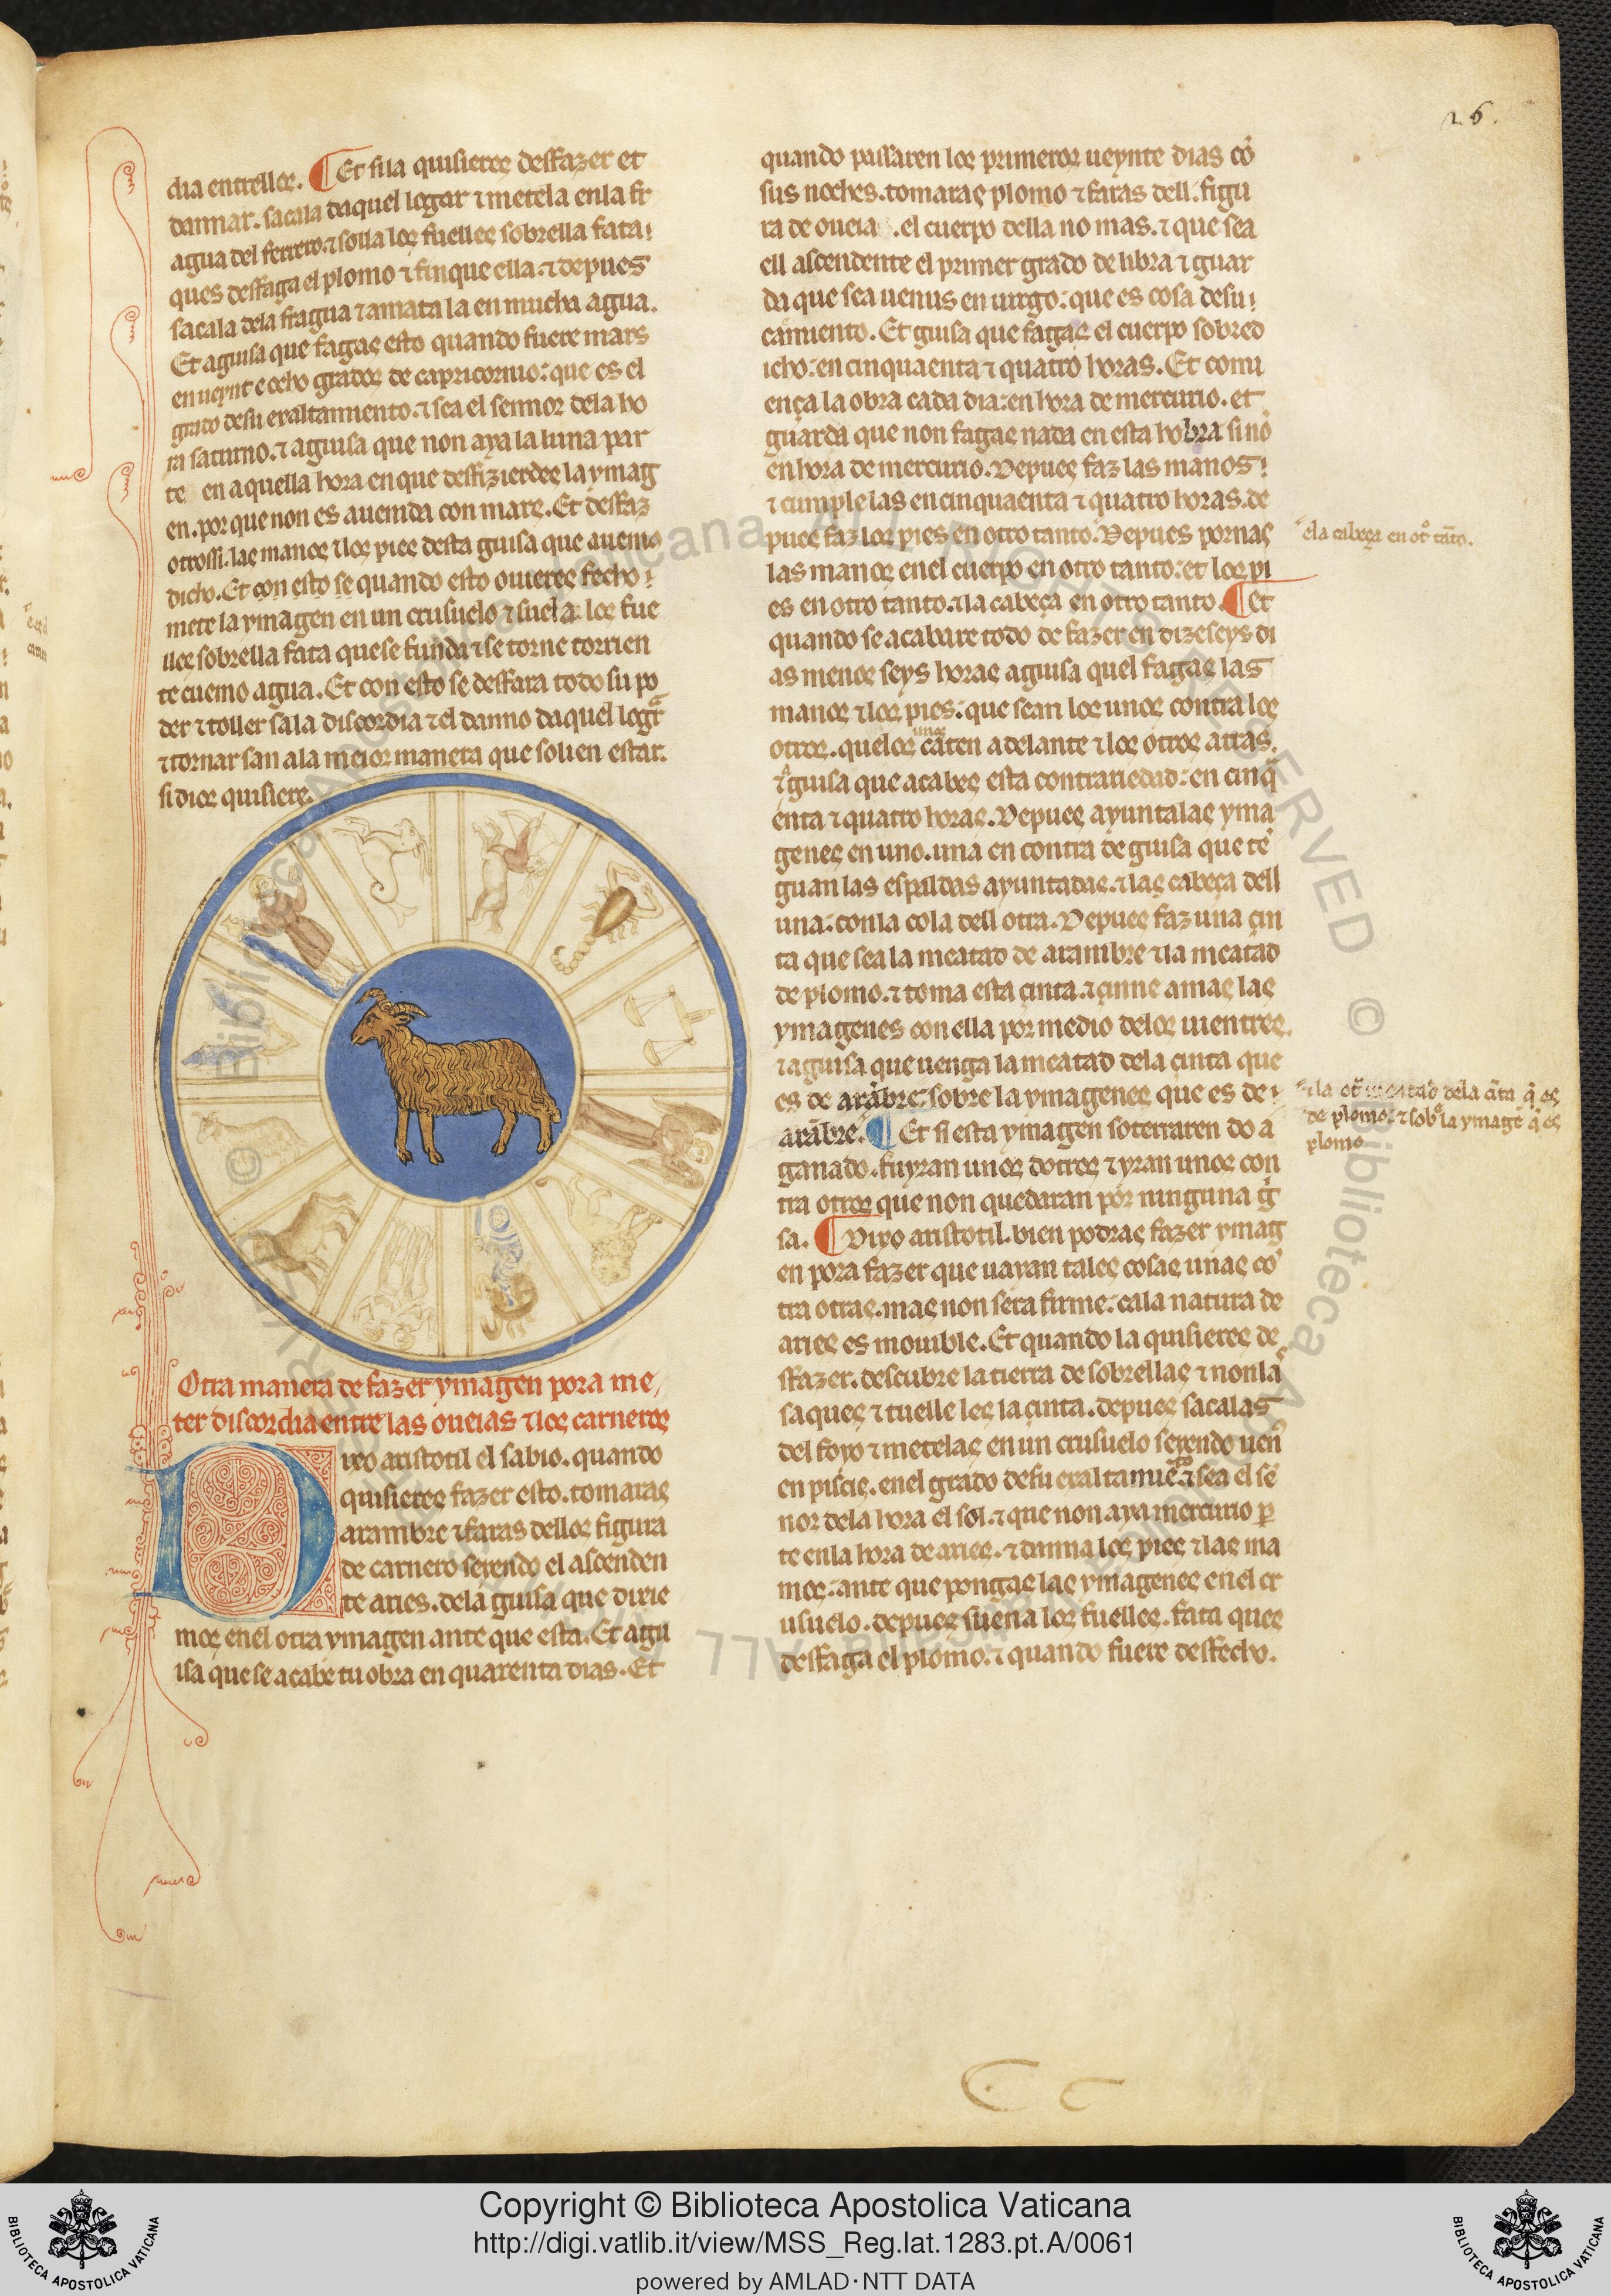 26.
dia entrellos. ¶ Et si la quisieres desfazer et
dannar. sacala daquel logar ⁊ metela en la fr
agua del ferrero. ⁊ solla los fuelles sobrella fata
ques desfaga el plomo ⁊ finque ella. ⁊ depues
sacala dela fragua ⁊ amata la en mucha agua.
Et aguisa que fagas esto quando fuere mars
en ueynt e ocho grados de capricornio: que es el
grado desu exaltamiento. ⁊ sea el sennor dela ho
ra saturno. ⁊ aguisa que non aya la luna par
te en aquella hora en que desfizierdes la ymag
en. por que non es auenida con mars. Et desfaz
otrossi. las manos ⁊ los pies desta guisa que auemos
dicho. Et con esto se quando esto ouieres fecho
mete la ymagen en un crusuelo ⁊ suela los fue
lles sobrella fata que se funda ⁊ se torne corrien
te cuemo agua. Et con esto se desfara todo su po
der ⁊ toller sa la discordia ⁊ el danno daquel logar
⁊ tornar san ala meior manera que solien estar.
si dios quisiere.
Otra manera de fazer ymagen pora me
ter discordia entre las oueias ⁊ los carneros
Dixo aristotil el sabio. quando
quisieres fazer esto. tomaras
arambre ⁊ faras dellos figura
de carnero seyendo el ascenden
te aries. dela guisa que dixie
mos enel otra ymagen ante que esta. Et agu
isa que se acabe tu obra en quarenta dias. Et
quando passaren los primeros ueynte dias cõ
sus noches. tomaras plomo ⁊ faras dell. figu
ra de oueia .el cuerpo della no mas. ⁊ que sea
ell ascendente el primer grado de libra ⁊ guar
da que sea uenus en uirgo: que es cosa desu
caimiento. Et guisa que fagas el cuerpo sobred
icho: en cinquaenta ⁊ quatro horas. Et comi
ença la obra cada dia: en hora de mercurio. et
guarda que non fagas nada en esta hobra sinõ
en hora de mercurio. Depues faz las manos
⁊ cumple las en cinquaenta ⁊ quatro horas. de
pues faz los pies en otro tanto. Depues pornas
las manos enel cuerpo en otro tanto: et los pi
es en otro tanto. ⁊ la cabeça en otro tanto. ¶ Et
quando se acabare todo de fazer en dizeseys di
as menos seys horas aguisa quel fagas las
manos ⁊ los pies: que sean los unos contra los
otros. que los unos caten adelante ⁊ los otros atras.
⁊ guisa que acabes esta contrariedad: en cinq
enta ⁊ quatro horas. Depues ayunta las yma
genes en uno. una en contra de guisa que tẽ
guan las espaldas ayuntadas. ⁊ las cabeça dell
una: con la cola dell otra. Depues faz una çin
ta que sea la meatad de arambre ⁊ la meatad
de plomo. ⁊ toma esta çinta. ⁊ çinne amas las
ymagenes con ella por medio delos uientres.
⁊ aguisa que uenga la meatad dela çinta que
es de arãbre: sobre la ymagenes que es de
arãbre. ¶ Et si esta ymagen soterraren do a
ganado. fuyran unos dotros ⁊ yran unos con
tra otros que non quedaran por ninguna g
sa. ¶ Dixo aristotil. bien podras fazer ymag
en pora fazer que uayan tales cosas unas cõ
tra otras. mas non sera firme: ca la natura de
aries es mouible. Et quando la quisieres de
sfazer. descubre la tierra de sobrellas ⁊ non las
saques ⁊ tuelle les la çinta. depues sacalas
del foyo ⁊ metelas en un crusuelo seyendo uen
en piscis. enel grado desu exaltamiẽto ⁊ sea el sẽ
nor dela hora el sol. ⁊ que non aya mercurio p
te en la hora de aries. ⁊ danna los pies ⁊ las ma
nos: ante que pongas las ymagenes enel cr
usuelo. depues suena los fuelles. fata ques
desfaga el plomo. ⁊ quando fuere desfecho.
ela cabeça en otº tãto.
⁊ la otª meatad dela çĩta q̃ es
de plomo: ⁊ sobº la ymagẽ q̃ es
plomo
Copyright © Biblioteca Apostolica Vaticana
http://digi.vatlib.it/view/MSS_Reg.lat.1283.pt.A/0061
powered by AMLAD·NTT DATA
BIBLIOTECA APOSTOLICA VATICANA
BIBLIOTECA APOSTOLICA VATICANA